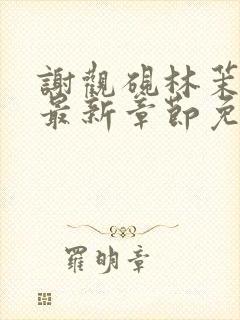 謝觀硯林茉
最新章節免
羅明章